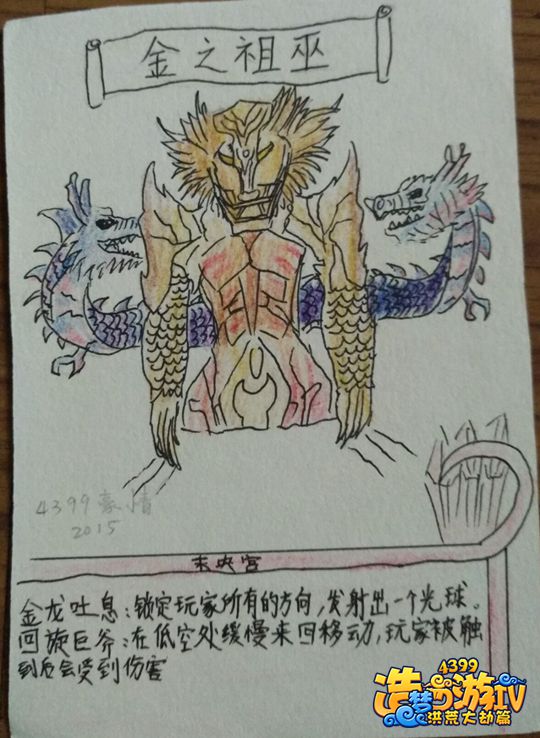 金之祖巫
4399豪情
2015
未央宫
金龙吐息:锁定玩家所有的方向,发射出一个光球。
回旋巨斧:在低空处缓慢来回移动,玩家被触
到后会受到伤害
4399
造梦西游IV
洪荒大劫篇